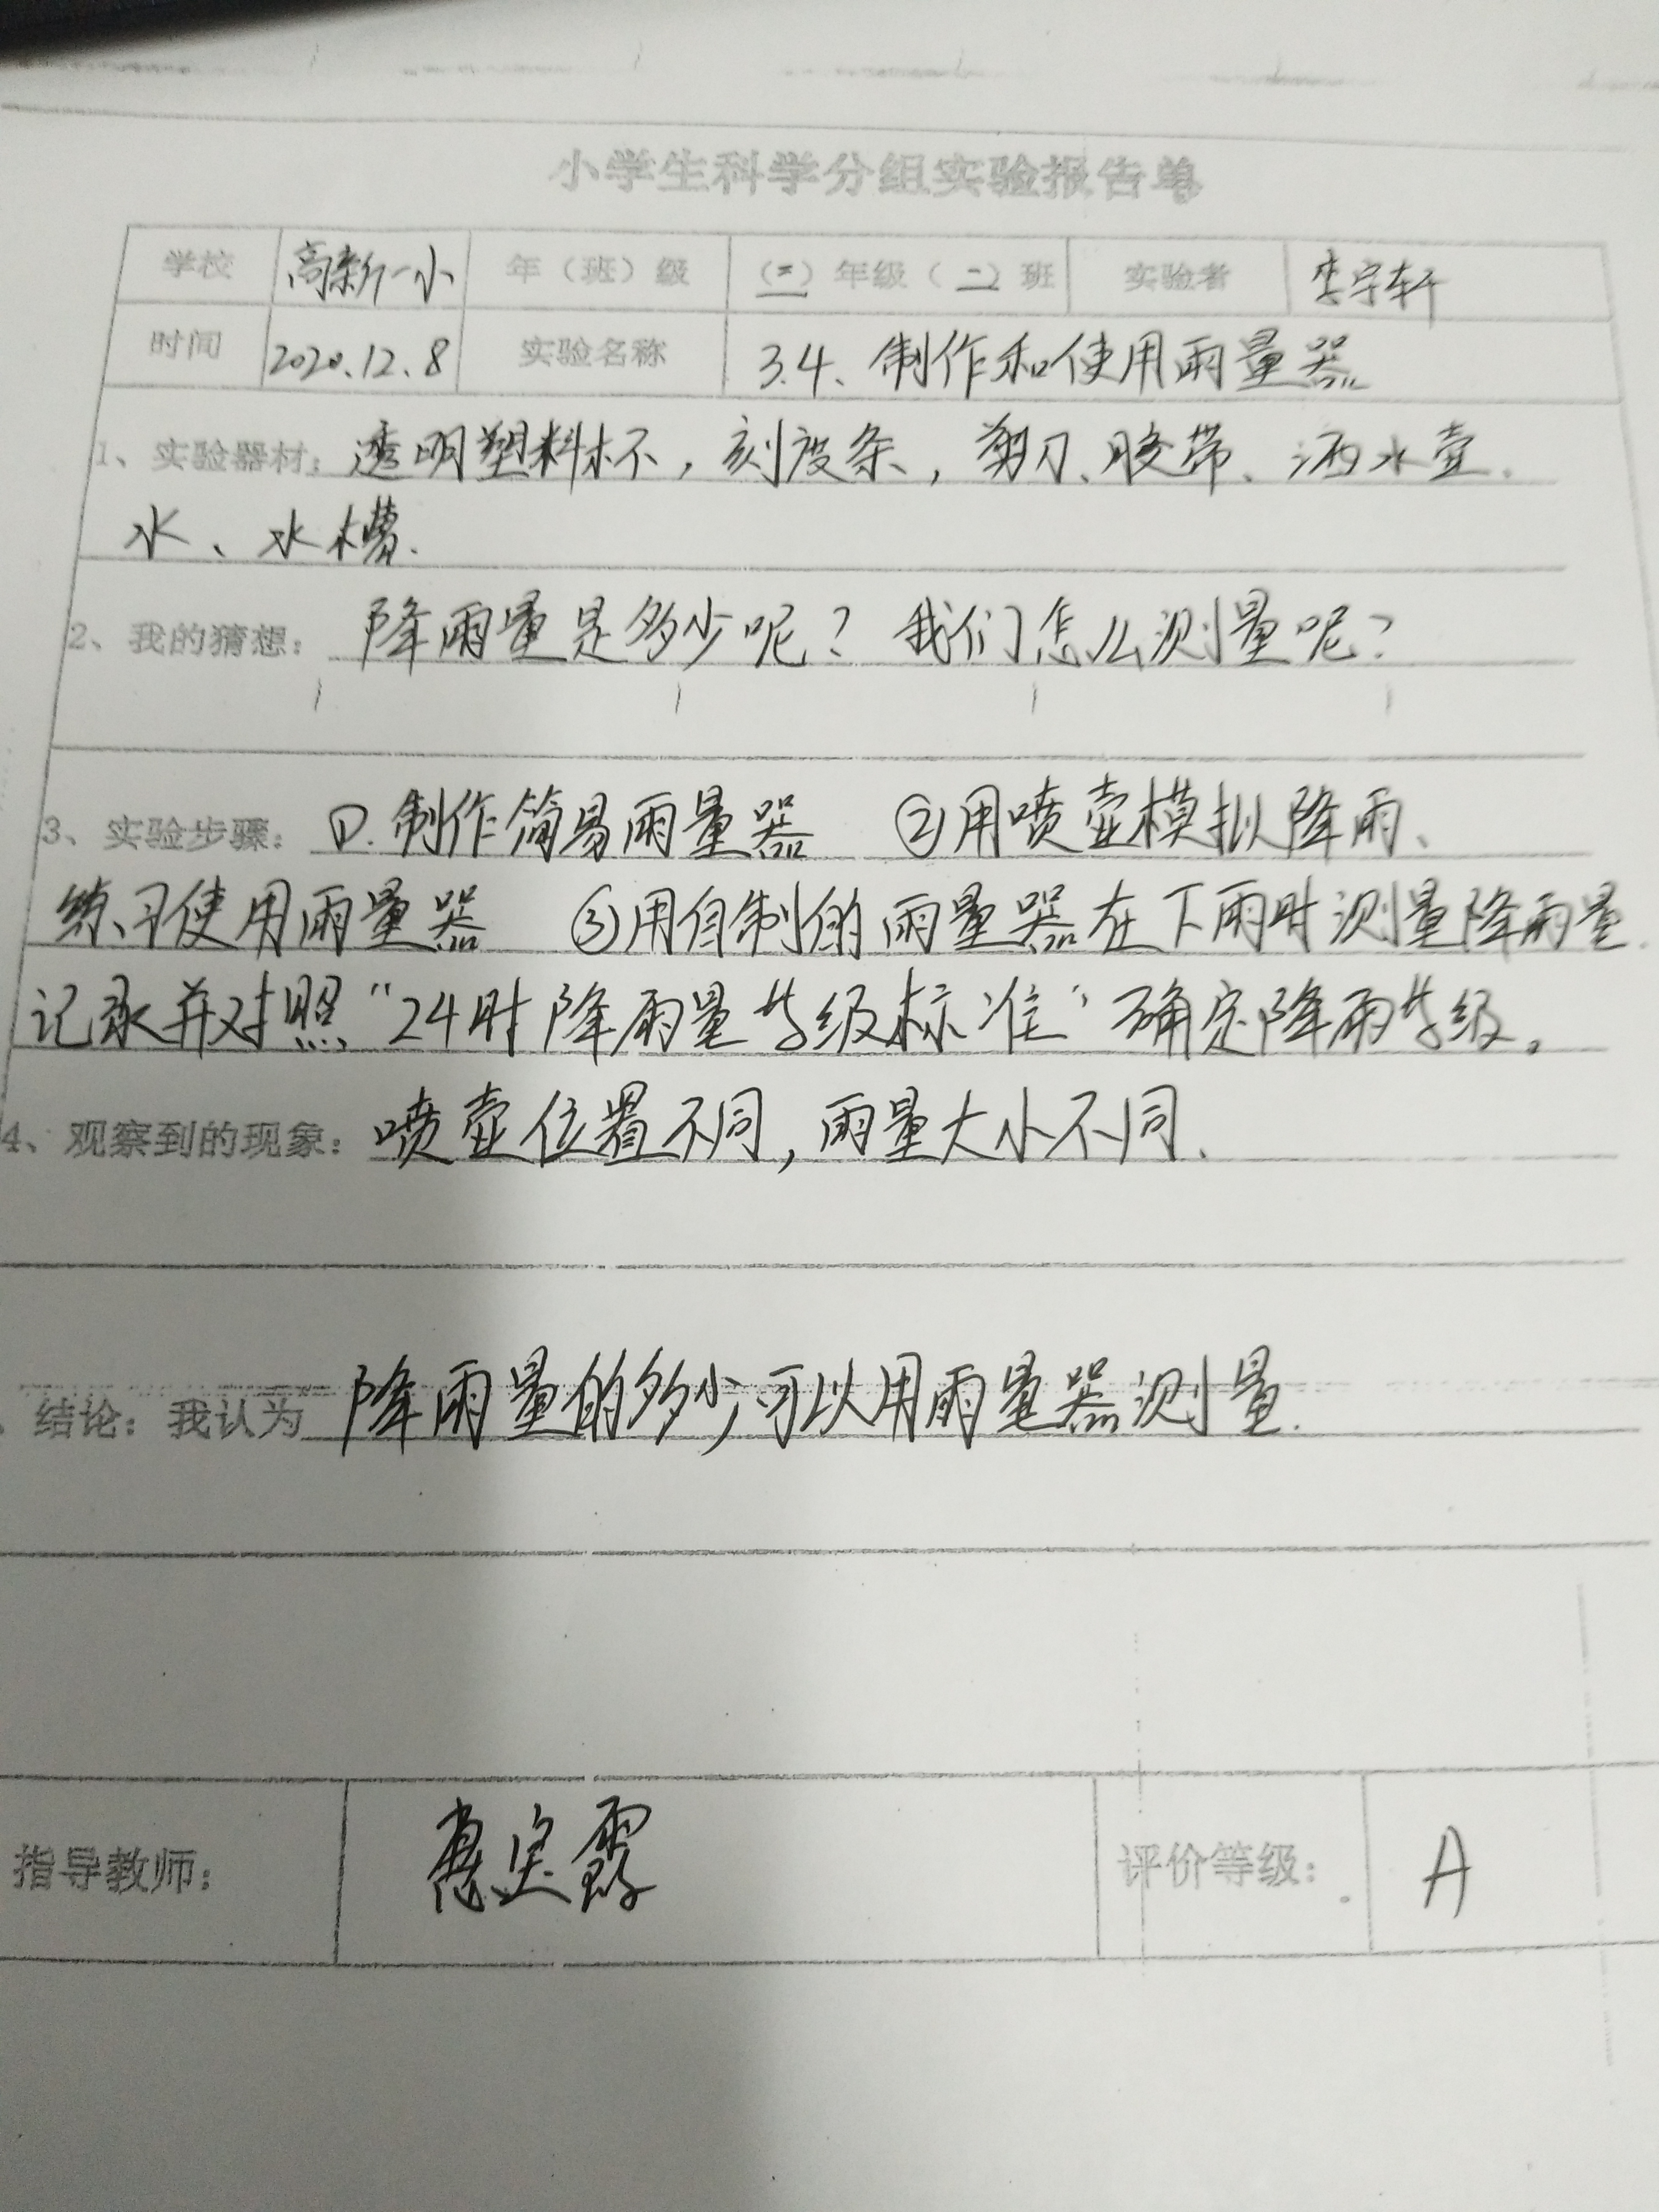 小学生科学分组实验报告单
学校 高新一小 年（班）级 （三）年级（二）班 实验者 李宇轩
时间 2020.12.8 实验名称 3.4、制作和使用雨量器
1、实验器材：透明塑料杯，刻度条，剪刀、胶带、洒水壶.
水、水槽.
2、我的猜想：降雨量是多少呢？我们怎么测量呢？
3、实验步骤：①.制作简易雨量器 ②用喷壶模拟降雨、
练习使用雨量器 ③用自制的雨量器在下雨时测量降雨量.
记录并对照“24时降雨量等级标准”确定降雨等级。
4、观察到的现象：喷壶位置不同，雨量大小不同.
、结论：我认为 降雨量的多少可以用雨量器测量.
指导教师： 评价等级： A